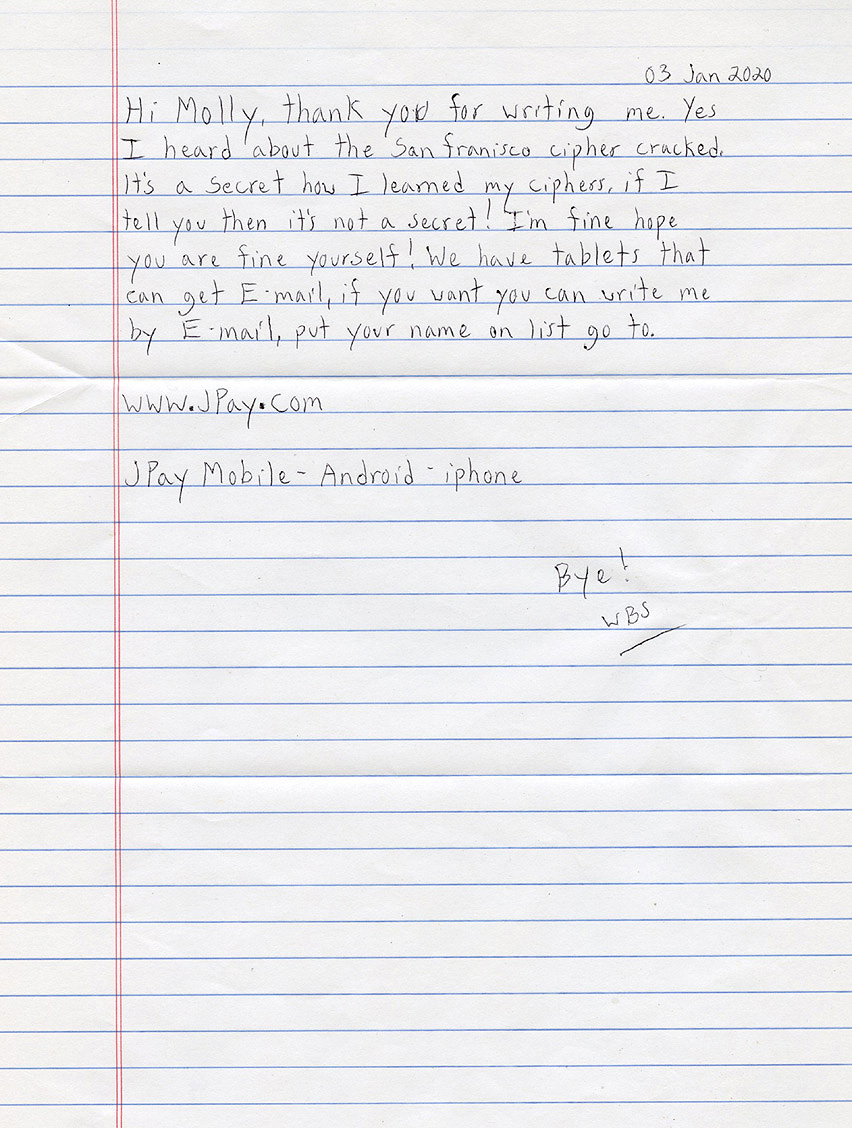 03 Jan 2020
Hi Molly, thank you for writing me. Yes
I heard about the San franisco cipher cracked.
It's a secret how I learned my ciphers, if I
tell you then it's not a secret! I'm fine hope
you are fine yourself! We have tablets that
can get E-mail, if you want you can write me
by E-mail, put your name on list go to.
www.JPay.com
JPay Mobile - Android - iphone
Bye!
WBS